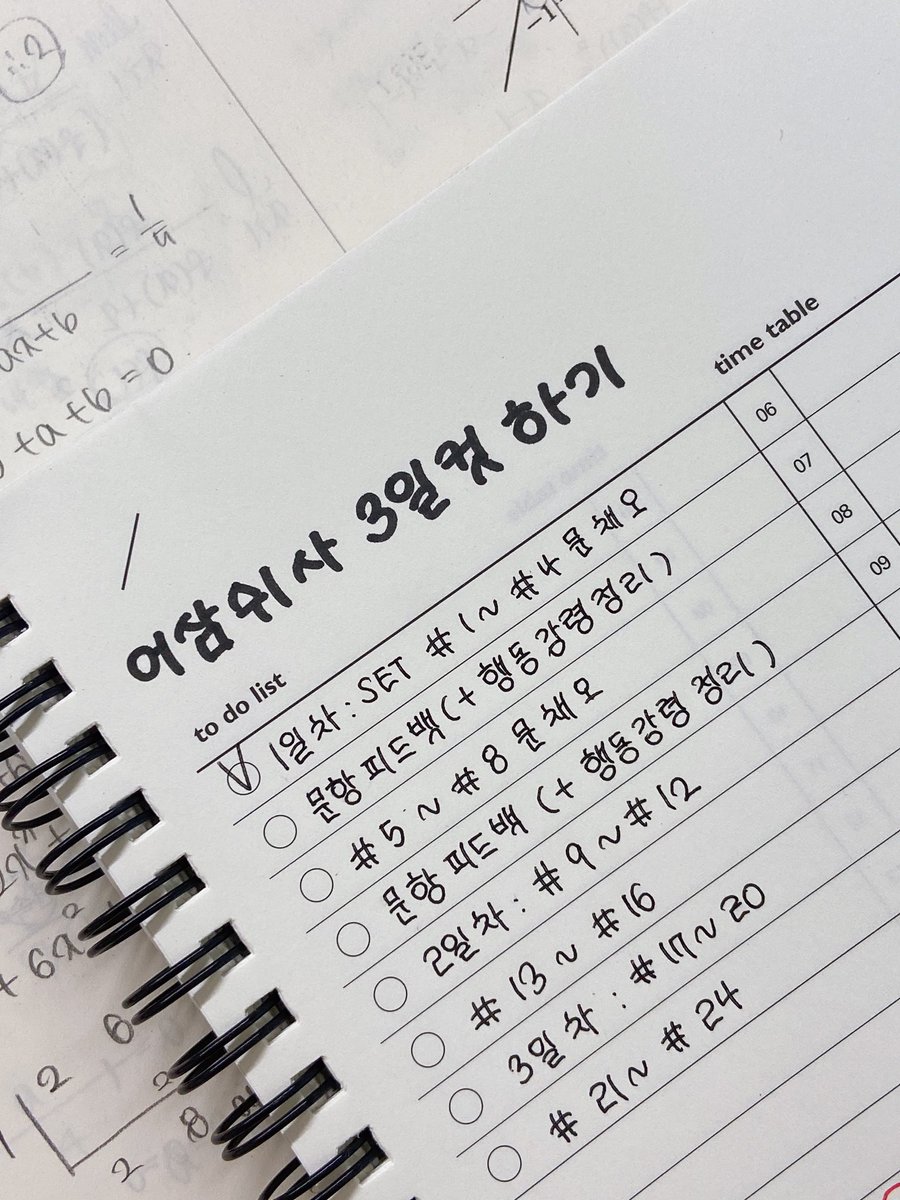 ∴ 2
-1
= 1/4
ax+b
+a+b=0
어삼쉬사 3일컷 하기
time table
to do list
06
07
08
09
1일차 : SET #1 ~ #4 문채오
문항 피드백 (+ 행동강령 정리)
#5 ~ #8 문채오
문항 피드백 (+ 행동강령 정리)
2일차 : #9 ~ #12
#13 ~ #16
3일차 : #17 ~ 20
#21 ~ #24
+ 6x²
2 6
2 8